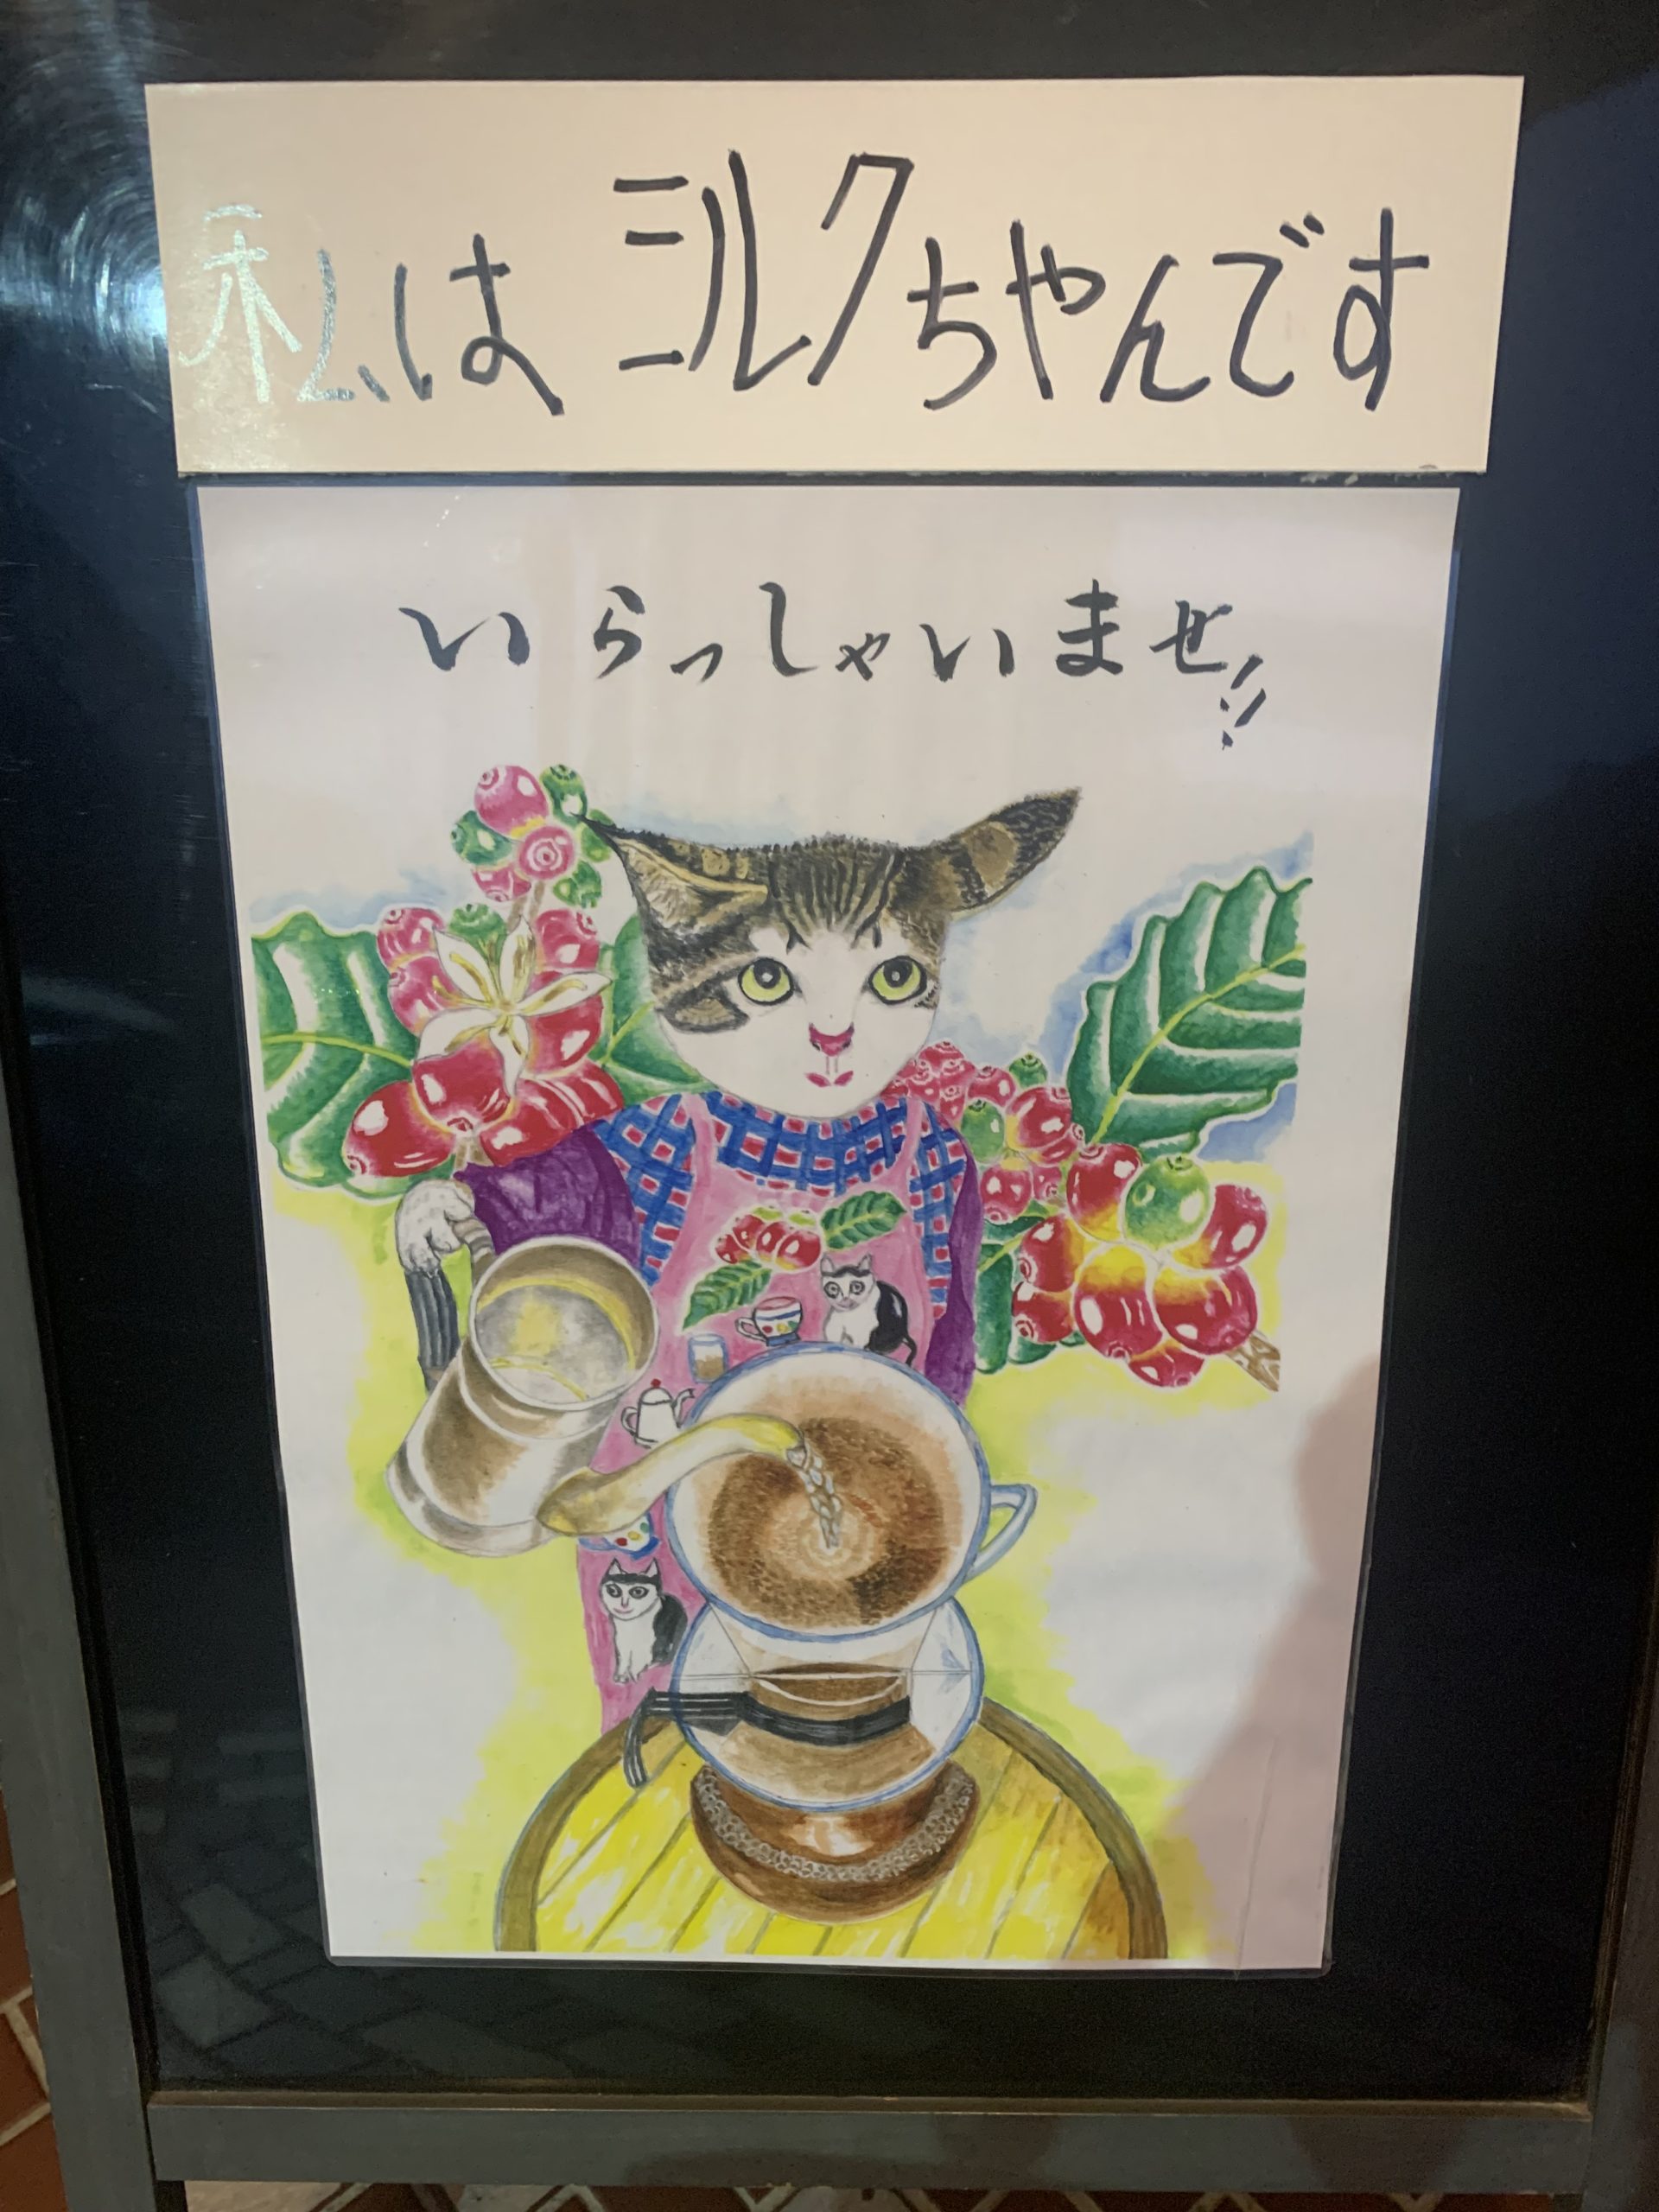 私は ミルクちゃんです
いらっしゃいませ!!